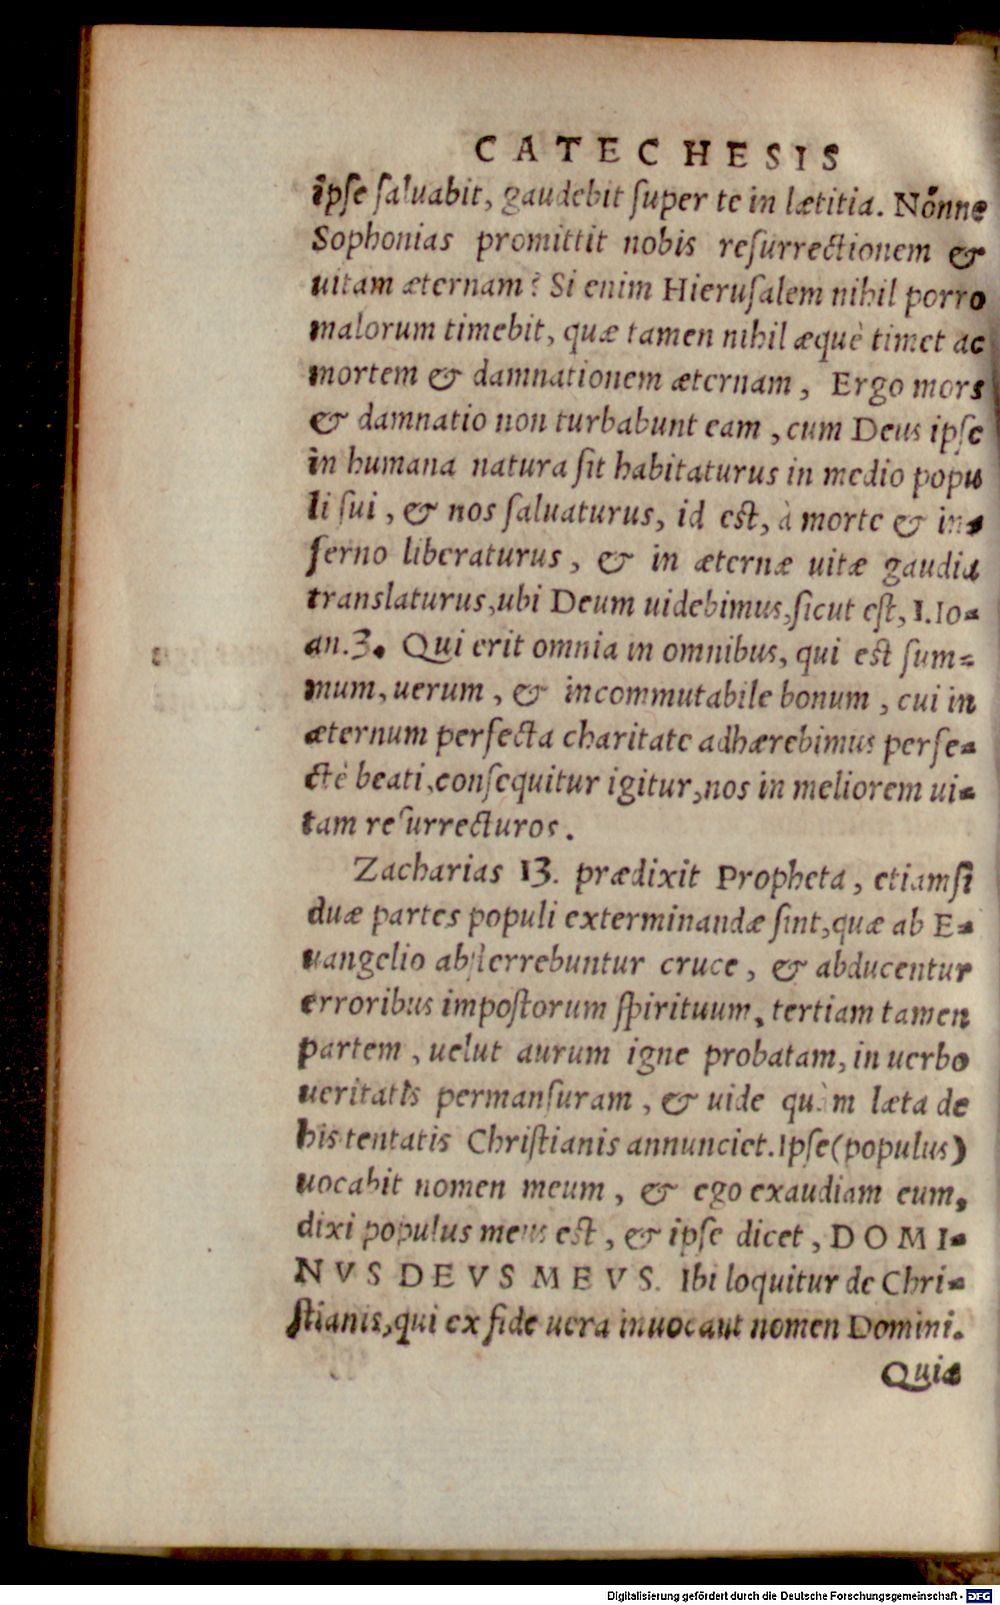 CATECHESIS
ipse saluabit, gaudebit super te in lætitia. Nónne
Sophonias promittit nobis resurrectionem &
uitam æternam? Si enim Hierusalem nihil porro
malorum timebit, quæ tamen nihil æquè timet ac
mortem & damnationem æternam, Ergo mors
& damnatio non turbabunt eam, cum Deus ipse
in humana natura sit habitaturus in medio popu
li sui, & nos saluaturus, id est, à morte & in-
ferno liberaturus, & in æternæ uitæ gaudia
translaturus, ubi Deum uidebimus, sicut est, 1. Io-
an. 3. Qui erit omnia in omnibus, qui est sum-
mum, uerum, & incommutabile bonum, cui in
æternum perfecta charitate adhærebimus perfe-
ctè beati, consequitur igitur, nos in meliorem ui-
tam resurrecturos.
Zacharias 13. prædixit Propheta, etiamsi
duæ partes populi exterminandæ sint, quæ ab E-
uangelio absterrebuntur cruce, & abducentur
erroribus impostorum spirituum, tertiam tamen
partem, uelut aurum igne probatam, in uerbo
ueritatis permansuram, & uide quàm læta de
his tentatis Christianis annunciet. Ipse (populus)
uocabit nomen meum, & ego exaudiam eum,
dixi populus meus est, & ipse dicet, DOMI-
NVS DEVS MEVS. Ibi loquitur de Chri-
stianis, qui ex fide uera inuocant nomen Domini.
Quia
Digitalisierung gefördert durch die Deutsche Forschungsgemeinschaft - DFG